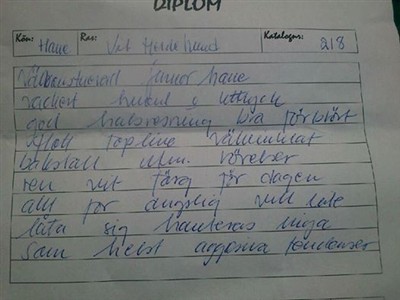 DIPLOM
Kön: Hane Ras: Vit Herdehund Katalognr: 218
Välkonstruerad junior hane
vackert huvud o uttryck
god halsresning bra förbröst
topline välvinklat
bakställ utm. rörelser
ren vit färg för dagen
allt för ängslig vill inte
låta sig hanteras inga
som helst aggresiva tendenser